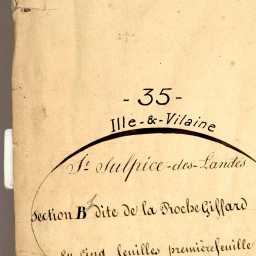 - 35 -
Ille-&-Vilaine
St Sulpice-des-Landes
Section B dite de la Roche Giffard
En Cinq feuilles première feuille